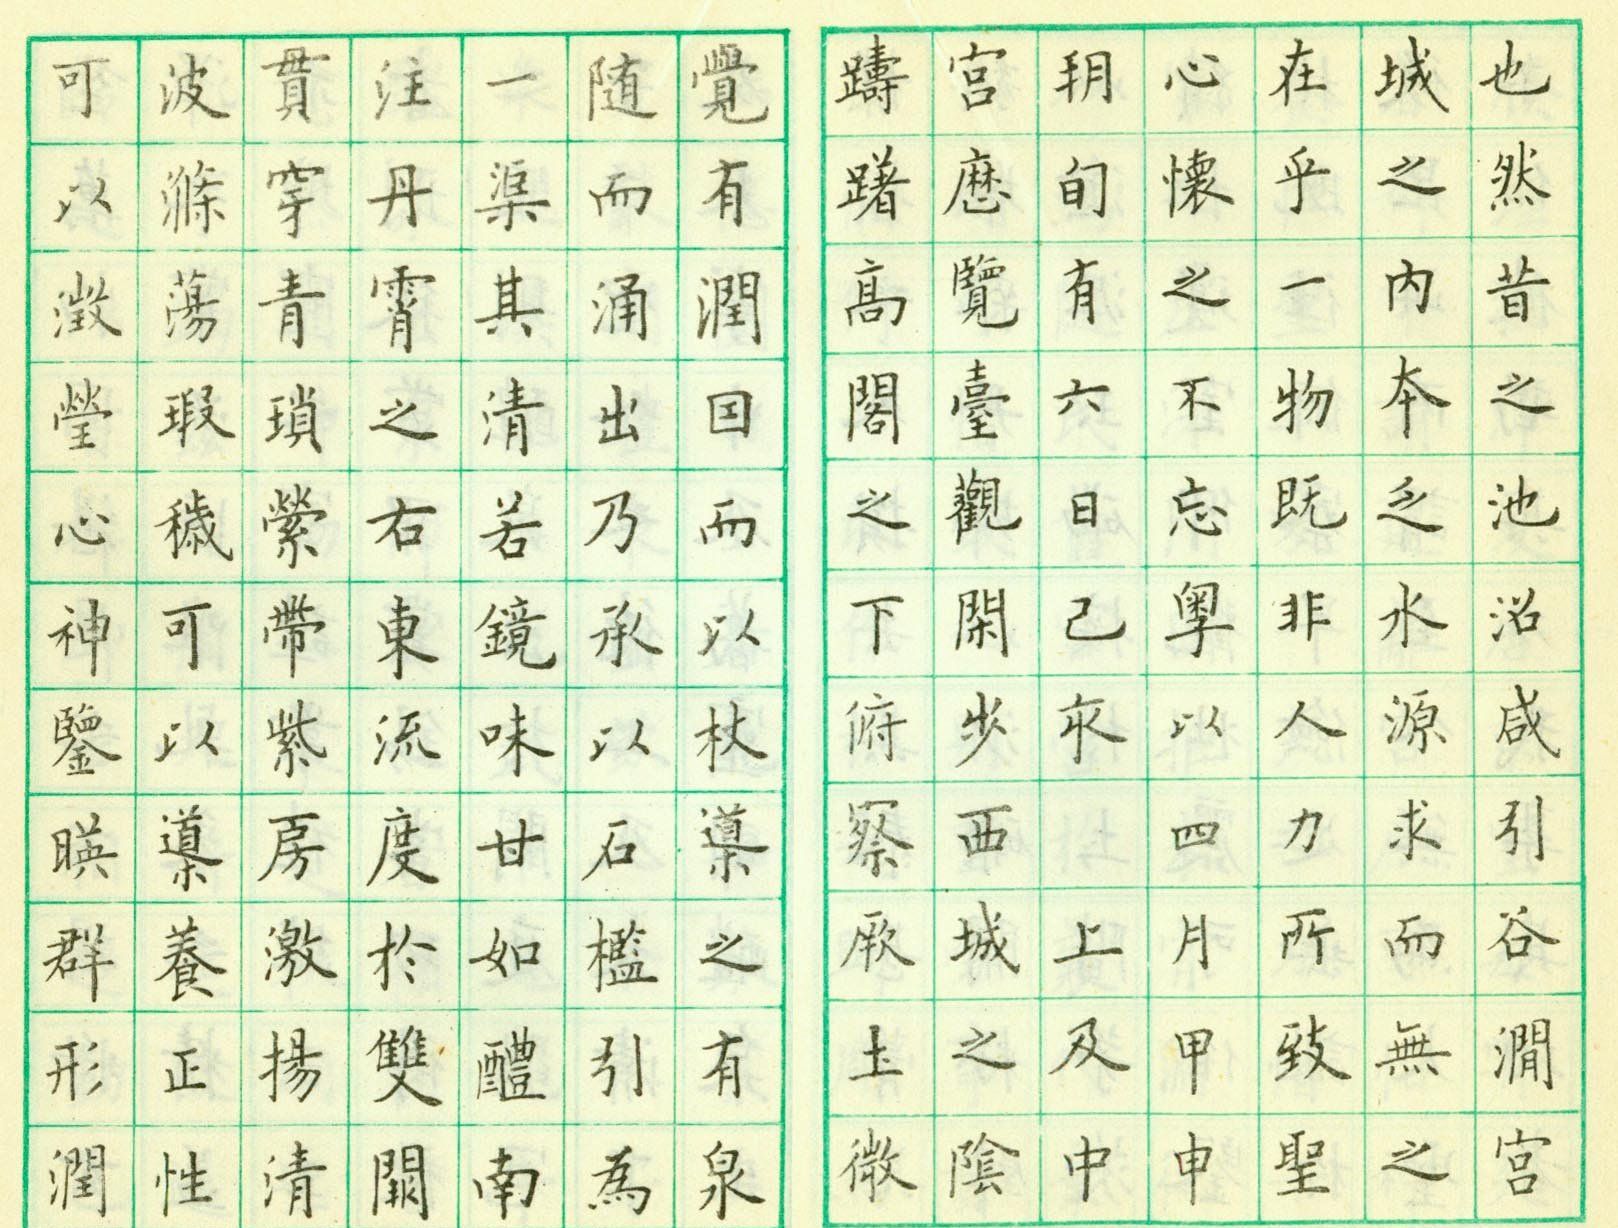 也然昔之池沼咸引谷澗宮
城之内本乏水源求而無之
在乎一物既非人力所致聖
心懷之不忘粤以四月甲申
朔旬有六日己亥上及中
宮歷覽臺觀閑步西城之陰
躊躇高閣之下俯察厥土微
覺有潤因而以杖導之有泉
随而涌出乃承以石檻引為
一渠其清若鏡味甘如醴南
注丹霄之右東流度於雙闕
貫穿青瑣縈帶紫房激揚清
波滌蕩瑕穢可以導養正性
可以澂瑩心神鑒暎群形潤